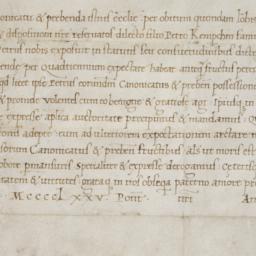 nonicatu & prebenda istius eccłie per obitum quondam Iohis
& dispositioni nre reseruatos dilecto filio Petro Kempchen fami
Petrus nobis exposuit in statutis seu consuetudinibus dicte
ende per Quadriennium expectare habeat anteq fructus perci
qd licet ipse Petrus eorundem Canonicatus & preben possessione
& prouide volentes cum eo benigne & gratiose agi Ipsius in
expresse aplica auctoritate precipimus & mandamus Q
onis adepte cum ad ulteriorem expectationem arctare n
istorum Canonicatus & preben fructibus als ut moris est
obore pmansuris specialiter & expresse derogamus Ceteris
itatem & virtutes grataq in nos obsequia paterno amore pro
MCCCCLXXV Pont nri An